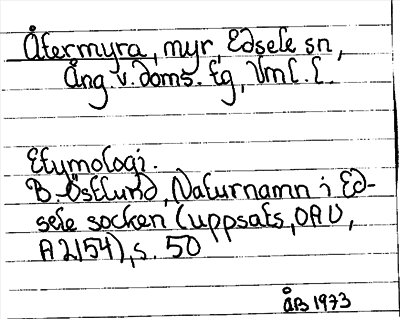 Återmyra, myr, Edsele sn,
Ång. v. doms. tg, Vml. l.
Etymologi.
B. Östlund, Naturnamn i Ed-
sele socken (uppsats, DAU,
A2154), s. 50
ÅB 1973